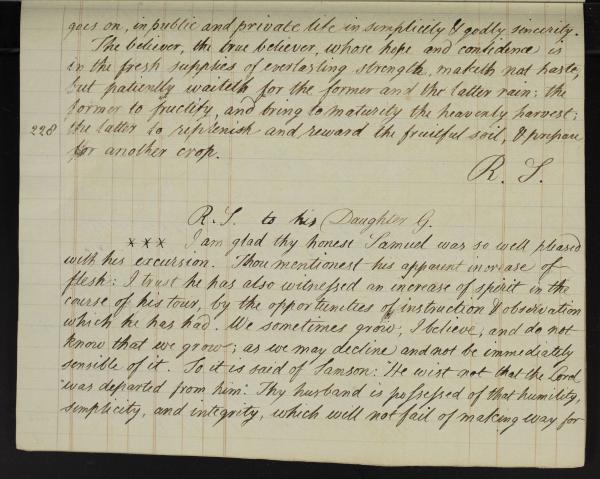 goes on, in public and private life in simplicity & godly sincerity.
The believer, the true believer, whose hope and confidence is
in the fresh supplies of everlasting strength, maketh not haste,
but patiently waiteth for the former and the latter rain; the
former to fructify, and bring to maturity the heavenly harvest;
228 the latter to replenish and reward the fruitful soil, & prepare
for another crop.
R. S.
R. S. to his Daughter G.
x x x I am glad thy honest Samuel was so well pleased
with his excursion. Thou mentionest his apparent increase of
flesh: I trust he has also witnessed an increase of spirit in the
course of his tour, by the opportunities of instruction & observation
which he has had. We sometimes grow, I believe, and do not
know that we grow; as we may decline and not be immediately
sensible of it. So it is said of Samson: He wist not that the Lord
was departed from him. Thy husband is possessed of that humility,
simplicity, and integrity, which will not fail of making way for